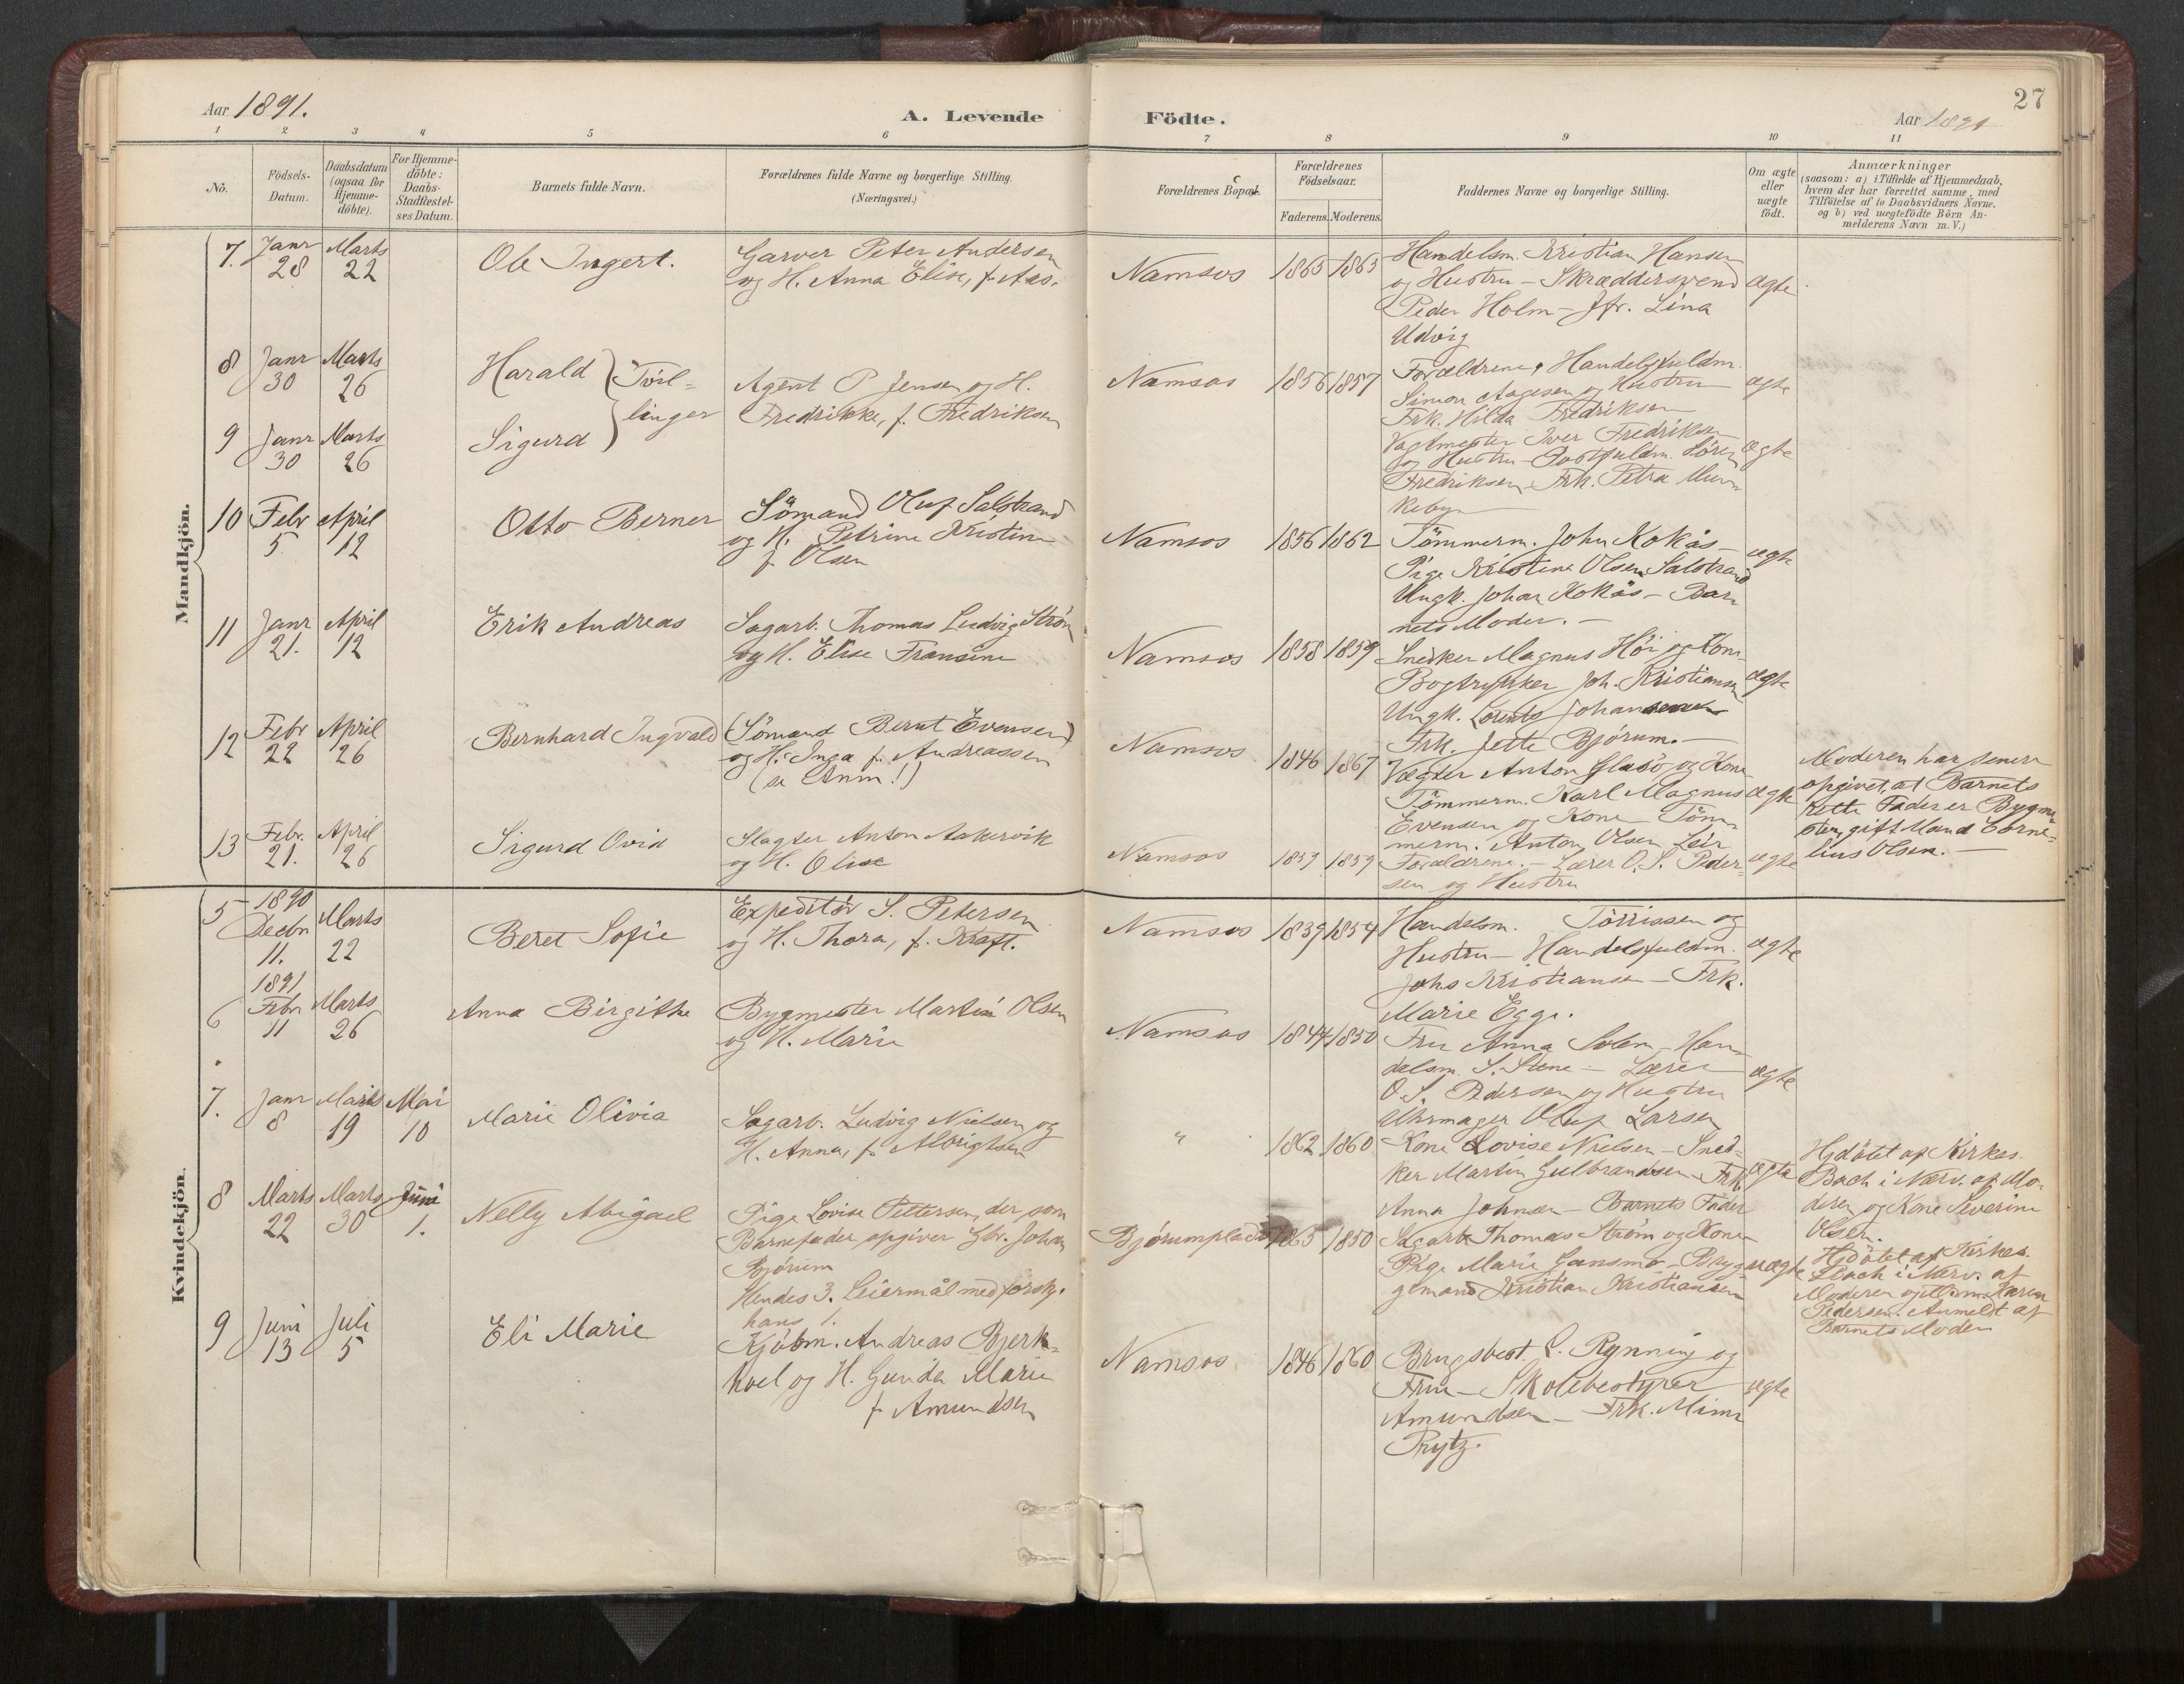 Aar 1891.
A. Levende
Födte.
27
Aar 1891
1 2 3 4 5 6 7 8 9 10 11
No.
Födsels-
Datum.
Daabsdatum
(ogsaa for
Hjemme-
döbte).
For Hjemme-
döbte:
Daabs-
Stadfæstel-
ses Datum.
Barnets fulde Navn.
Forældrenes fulde Navne og borgerlige Stilling.
(Næringsvei.)
Forældrenes Bopæl.
Forældrenes
Födselsaar.
Faderens. Moderens.
Faddernes Navne og borgerlige Stilling.
Om ægte
eller
uægte
födt.
Anmærkninger
(saasom: a) i Tilfælde af Hjemmedaab,
hvem der har forrettet samme, med
Tilföielse af to Daabsvidners Navne.
og b) ved uægtefödte Börn An-
melderens Navn m. V.)
Mandkjön.
7. Janr 28 Marts 22
Ole Ingert.
Garver Peter Andersen
og H. Anna Elise, f. Aas.
Namsos 1865 1863
Handelsm. Kristian Hansen
og Hustru – Skræddersvend
Peder Holm – Jfr. Lina
Udvig
ægte
8 Janr 30 Marts 26
Harald
Tvil-
linger
9 Janr 30 Marts 26
Sigurd
Agent P. Jensen og H.
Fredrikke, f. Fredriksen
Namsos 1856 1857
Forældrene, Handelsfuldm.
Simon Aagesen og Hustru
Frk. Hilda Fredriksen
Vagtmester Iver Fredriksen
og Hustru – Postfuldm. Sören
Fredriksen – Frk. Petra Mun-
keby
ægte
ægte
10 Febr 5 April 12
Otto Berner
Sömand Oluf Salstrand
og H. Petrine Kristine
f. Olsen
Namsos 1856 1862
Tömmerm. John Kokås –
Pige Kristine Olsen Salstrand
Ungk. Johan Kokås – Bar-
nets Moder. –
ægte
11 Janr 21. April 12
Erik Andreas
Sagarb. Thomas Ludvig Ström
og H. Elise Fransine
Namsos 1858 1859
Snedker Magnus Höi og Kone
Bogtrykker Joh. Kristiansen
Ungk. Lorents Johansen
Frk. Jette Bjørum. –
ægte
12 Febr 22 April 26
Bernhard Ingvald
(Sömand Bernt Evensen)
og H. Inga f. Andreassen
(se Anm!)
Namsos 1846 1867
Vægter Anton Glasö og Kone
Tömmerm. Karl Magnus
Evensen og Kone Töm-
merm. Anton Olsen
ægte
Moderen har senere
opgivet, at Barnets
rette Fader er Bygme-
ster, gift Mand Corne-
lius Olsen. –
13 Febr. 21. April 26
Sigurd Ovid
Slagter Anton Aakervik
og H. Olise
Namsos 1859 1859
Forældrene. – Lærer O. S. Peder-
sen og Hustru
ægte
Kvindekjön.
5 1890 Decbr 11. Marts 22
Beret Sofie
Expeditör S. Petersen
og H. Thora, f. Kraft.
Namsos 1839 1854
Handelsm. Törrissen og
Hustru – Handelsfuldm.
Johs Kristiansen – Frk.
Marie Egge.
ægte
6 1891 Febr 11 Marts 26
Anna Birgithe
Bygmester Martin Olsen
og H. Marie
Namsos 1844 1850
Fru Anna Solem – Han-
delsm. S. Stene – Lærer
O. S. Pedersen og Hustru
Uhrmager Oluf Larsen
ægte
7. Janr 8 Marts 19 Mai 10
Marie Olivia
Sagarb. Ludvig Nielsen og
H. Anna, f. Albrigtsen
" 1862 1860
Kone Lovise Nielsen – Sned-
ker Martin Gulbrandsen – Frk.
Anna Johnsen – Barnets Fader
ægte
Hjdöbt af Kirkes.
Bach i Nærv. af Mo-
deren og Kone Severine
Olsen.
8 Marts 22 Marts 30 Juni 1.
Nelly Abigael
Pige Lovise Pettersen, der som
Barnefader opgiver Gbr. Johan
Bjørum
Hendes 3. Leiermål med forskj.
hans 1.
Bjørumplads 1865 1850
Sagarb. Thomas Ström og Kone
Pige Marie Gansmo – Bryg-
gemand Kristian Kristiansen
uægte
Hjdöbt af Kirkes.
Bach i Nærv. af
Moderen og Karen
Pedersen. Anmeldt af
Barnets Moder
9 Juni 13 Juli 5
Eli Marie
Kjöbm. Andreas Bjerk-
hoel og H. Gunda Marie
f. Amundsen
Namsos 1846 1860
Brugsbest. L. Rynning og
Frue – Skolebestyrer
Amundsen – Frk. Mimi
Prytz.
ægte